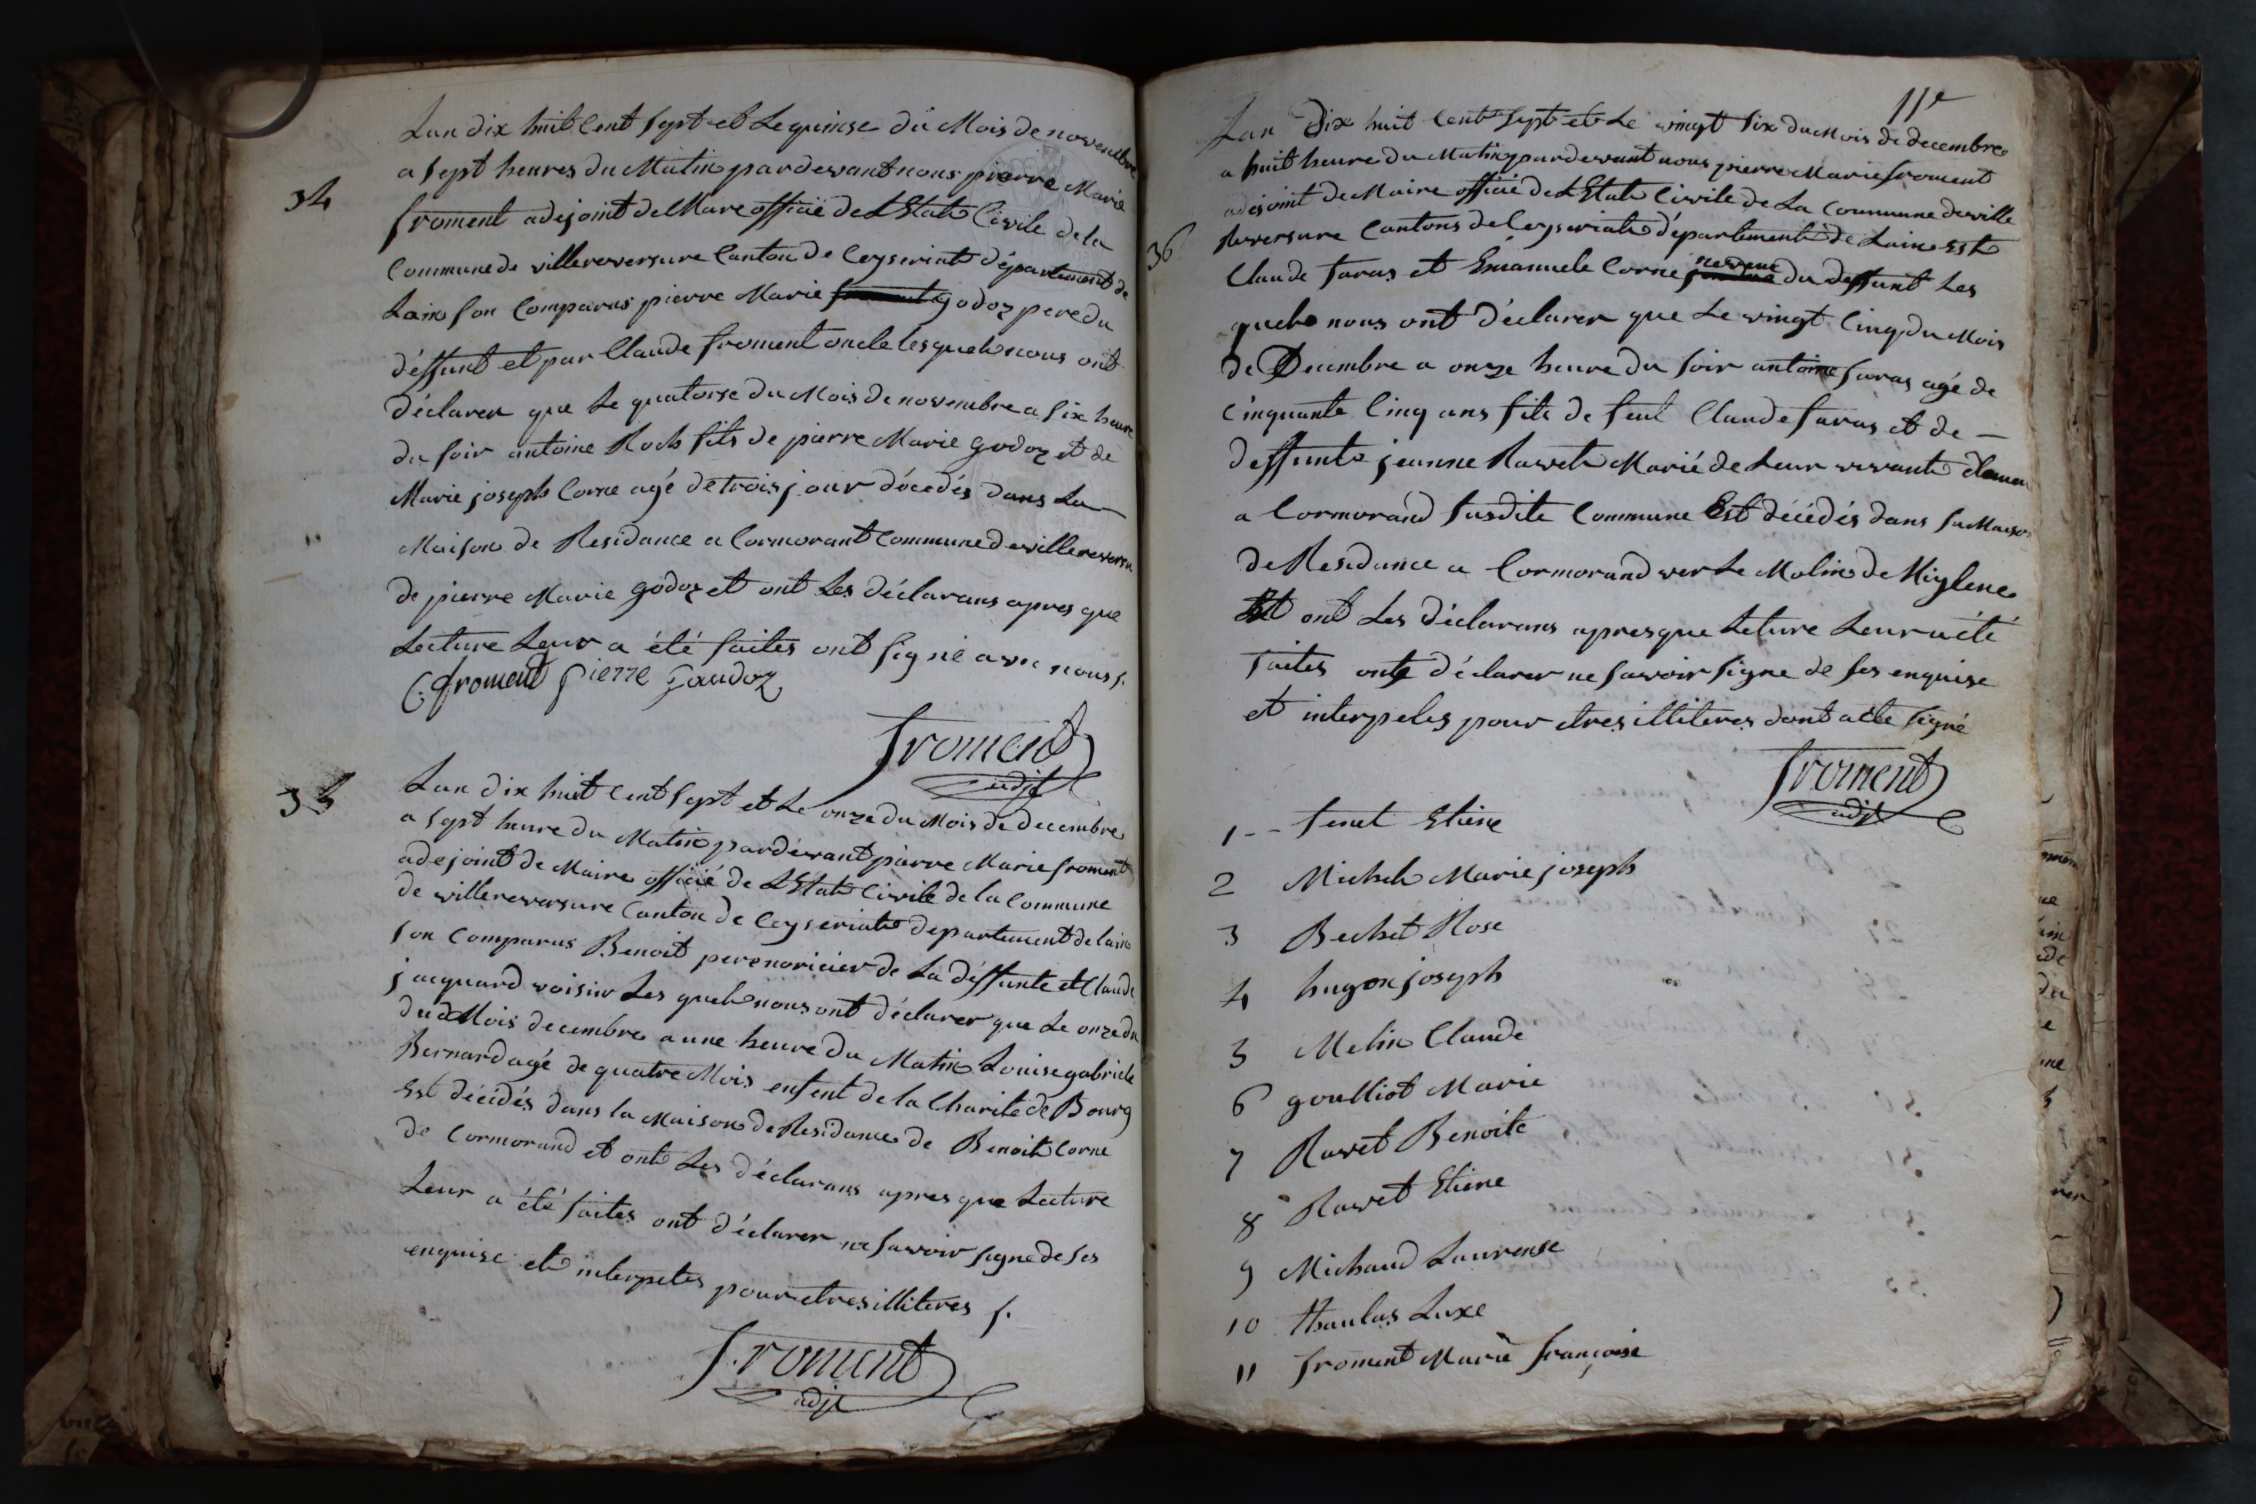 34
Lan dix huit Cent sept et Le quinse du Mois de novembre
a sept heures du Matin pardevant nous pierre Marie
froment adejoint de Mare officié de LEtat Civile de la
Commune de villereversure Canton de Ceyseriat département de
Lain son Comparus pierre Marie froment godoz pere du
déffunt et par Claude froment oncle lesquels nous ont
déclarer que Le quatorse du Mois de novembre a six heure
du soir antoine Roch fils de pierre Marie godoz et de
Marie joseph Corne agé de trois jour décedés dans La
Maison de Residance a Cormorant Commune de villereversu
de pierre Marie godoz et ont Les déclarans apres que
Lecture Leur a été faites ont signé avec nous s.
C. froment pierre Gaudoz
froment
adjt
35
Lan dix huit Cent sept et Le onze du Mois de decembre
a sept heure du Matin pardevant pierre Marie froment
adejoint de Maire officié de LEtat Civile de la Commune
de villereversure Canton de Ceyseriat departement de lain
son Comparus Benoit pere noricier de La déffunte et Claude
jacquard voisin Les quels nous ont déclarer que Le onze du
dud Mois decembre a une heure du Matin Louise gabriele
Bernard agé de quatre Mois enfent de la Charité de Bourg
Est décédés dans la Maison de Residance de Benoit Corne
de Cormorand et ont Les déclarans apres que Lecture
Leur a été faites ont déclarer ne savoir signe de ses
enquise et interpeles pour etres illiteres s.
froment
adjt
11e
36
Lan Dix huit Cent Sept et Le vingt six du Mois de decembre
a huit heure du Matin pardevant nous pierre Marie froment
adejoint de Maire officié de LEtat Civile de La Commune de ville
Reversure Cantons de Ceyseriat département de Lain Est
Claude faras et Emanuele Corne neveux du deffunt Les
quels nous ont déclarer que Le vingt Cinq du Mois
de Decembre a onze heure du soir antoine faras agé de
Cinquante Cinq ans fils de feut Claude faras et de
deffunte jeanne Ravet Marié de Leur vivant
a Cormorand susdite Commune Est décédés dans sa Maison
de Residance a Cormorand ver Le Molin de
Et ont Les déclarans apres que Leture Leur a été
faites ont déclarer ne savoir signe de ses enquise
et interpeles pour etres illiteres dont acte signé
froment
adjt
1 -- tenet Etiene
2 Michel Marie joseph
3 Bechet Rose
4 hugon joseph
5 Melin Claude
6 goulliot Marie
7 Ravet Benoite
8 Ravet Etiene
9 Michaud Laurense
10 Luxe
11 froment Marie françoise